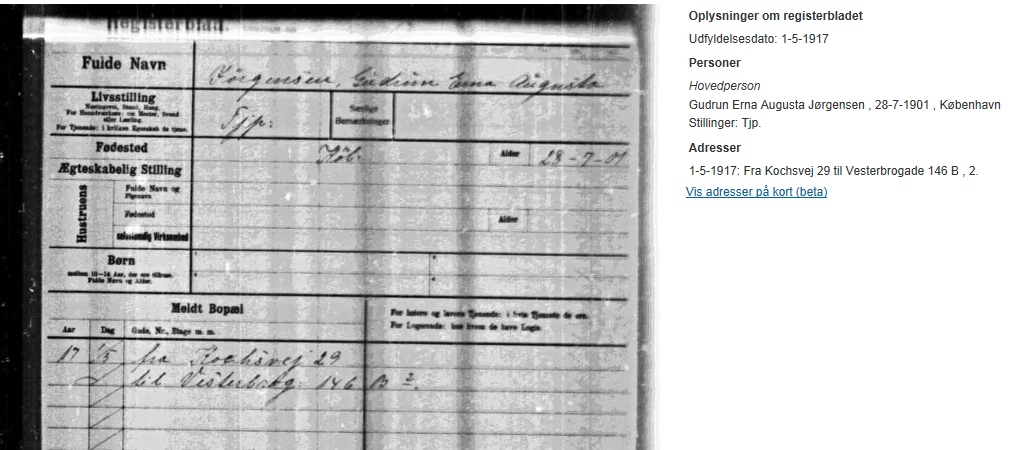 Registerblad.
Fulde Navn
Jörgensen, Gudrun Erna Augusta
Livsstilling
Næringsvej, Stand, Haandt.
For Haandværkere: om Mester, Svend
eller Lærling.
For Tjenende: i hvilken Egenskab de tjene.
Tjp:
Særlige
Bemærkninger
Fødested
Köb.
Alder
28-7-01
Ægteskabelig Stilling
Hustruens
Fulde Navn og
Pigenavn
Fødested
Alder
selvstændig Virksomhed
Børn
mellem 10-14 Aar, der ere tilhuse.
Fulde Navn og Alder.
Meldt Bopæl
For højere og lavere Tjenende: i hvis Tjeneste de ere.
For Logerende: hos hvem de have Logis.
Aar Dag Gade, Nr., Etage m. m.
17 1/5 fra Kochsvej 29
til Vesterbrog 146 B 2.
Oplysninger om registerbladet
Udfyldelsesdato: 1-5-1917
Personer
Hovedperson
Gudrun Erna Augusta Jørgensen , 28-7-1901 , København
Stillinger: Tjp.
Adresser
1-5-1917: Fra Kochsvej 29 til Vesterbrogade 146 B , 2.
Vis adresser på kort (beta)